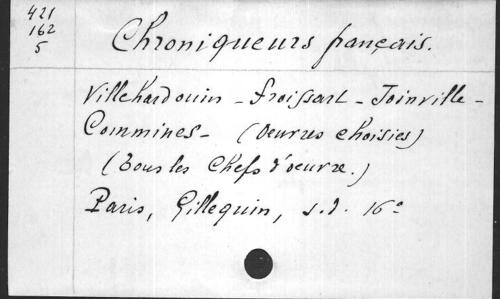 421
162
5
Chroniqueurs français.
Villehardouin - Froissart - Joinville -
Commines - (Oeuvres choisies)
(Tous les Chefs d'oeuvre.)
Paris, Gillequin, s.d. 16º